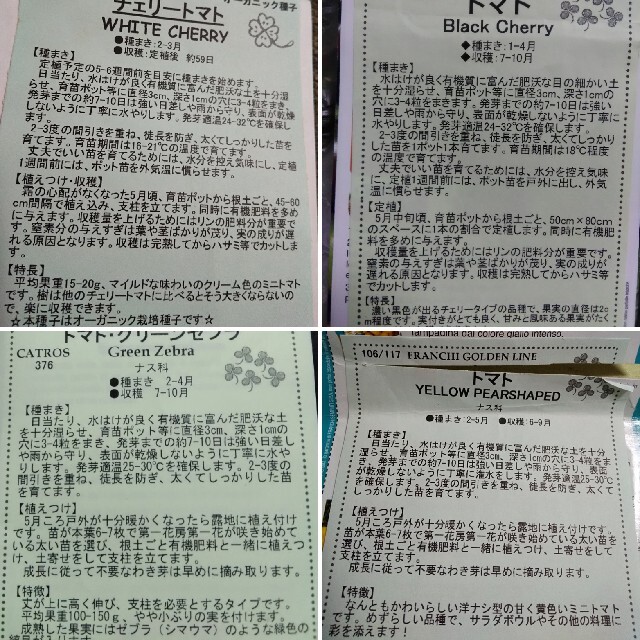 オーガニック種子
チェリートマト
WHITE CHERRY
●種まき:2-3月
●収穫:定植後 約59日
【種まき】
定植予定の5-6週間前を目安に種まきを始めます。
日当たり、水はけが良く有機質に富んだ肥沃な土を十分湿
らせ、育苗ポット等に直径3cm、深さ1cmの穴に3-4粒をまき、
発芽までの約7-10日は強い日差しや雨から守り、表面が乾燥
しないように丁寧に水やりします。発芽適温24-32℃を確保し
ます。
2-3度の間引きを重ね、徒長を防ぎ、太くてしっかりした苗を
育てます。育苗期間は16-21℃の温度で育てます。
丈夫でいい苗を育てるためには、水分を控え気味にし、定植
1週間前には、ポット苗を外気温に慣らせます。
【植えつけ・収穫】
霜の心配がなくなった5月頃、育苗ポットから根土ごと、45-60
cm間隔で植え込み、支柱を立てます。同時に有機肥料を多め
に与えます。収穫量を上げるためにはリンの肥料分が重要で
す。窒素分の与えすぎは葉や茎ばかりが茂り、実の成りが遅
れる原因となります。収穫は完熟してからハサミ等でカットしま
す。
【特長】
平均果重15-20g、マイルドな味わいのクリーム色のミニトマト
です。樹は他のチェリートマトに比べるとそう大きくならないの
で、楽に収穫できます。
☆本種子はオーガニック栽培種子です☆
トマト
Black Cherry
◆種まき:1-4月
◆収穫:7-10月
【種まき】
水はけが良く有機質に富んだ肥沃な目の細かい土
を十分湿らせ、育苗ポット等に直径3cm、深さ1cmの
穴に3-4粒をまきます。発芽までの約7-10日は強い
日差しや雨から守り、表面が乾燥しないように丁寧
に水やりします。発芽適温24-32℃を確保します。
2-3度の間引きを重ね、徒長を防ぎ、太くてしっか
りした苗を1ポット1本育てます。育苗期間は18℃程度
の温度で育てます。
丈夫でいい苗を育てるためには、水分を控え気味
にし、定植1週間前には、ポット苗を戸外に出し、外気
温に慣らせます。
【定植】
5月中旬頃、育苗ポットから根土ごと、50cm×80cm
のスペースに1本の割合で定植します。同時に有機肥
料を多めに与えます。
収穫量を上げるためにはリンの肥料分が重要です。
窒素の与えすぎは葉や茎ばかりが茂り、実の成りが
遅れる原因となります。収穫は完熟してからハサミ等
でカットします。
【特長】
濃い黒色が出るチェリータイプの品種で、果実の直径は2c
m程度です。実付きがとても良く、甘みと風味ある果実がたく
トマト・グリーンゼブラ
CATROS
376
Green Zebra
ナス科
●種まき: 2-4月
●収穫: 7-10月
【種まき】
日当たり、水はけが良く有機質に富んだ肥沃な土
を十分湿らせ、育苗ポット等に直径3cm、深さ1cmの
穴に3-4粒をまき、発芽までの約7-10日は強い日差
しや雨から守り、表面が乾燥しないように丁寧に水や
りします。発芽適温25-30℃を確保します。2-3度の
間引きを重ね、徒長を防ぎ、太くてしっかりした苗
を育てます。
【植えつけ】
5月ころ戸外が十分暖かくなったら露地に植え付け
です。苗が本葉6-7枚で第一花房第一花が咲き始めて
いる太い苗を選び、根土ごと有機肥料と一緒に植えつ
け、土寄せをして支柱を立てます。
成長に従って不要なわき芽は早めに摘み取ります。
【特徴】
丈が上に高く伸び、支柱を必要とするタイプです。
平均果重100-150g、やや小ぶりの実を付けます。
成熟した果実にはゼブラ(シマウマ)のような緑色の
tampadina dal colore giallo intenso.
106/117 FRANCHI GOLDEN LINE
トマト
YELLOW PEARSHAPED
ナス科
●種まき:2-5月 ●収穫:6-9月
【種まき】
日当たり、水はけが良く有機質に富んだ肥沃な土を十分
湿らせ、育苗ポット等に直径3cm、深さ1cmの穴に3-4粒をま
き、発芽までの約7-10日は強い日差しや雨から守り、表面
が乾燥しないように丁寧に灌水をします。発芽適温25-30℃
を確保します。2-3度の間引きを重ね、徒長を防ぎ、太くて
しっかりした苗を育てます。
【植えつけ】
5月ころ戸外が十分暖かくなったら露地に植え付けです。
苗が本葉6-7枚で第一花房第一花が咲き始めている太い苗
を選び、根土ごと有機肥料と一緒に植えつけ、土寄せをし
て支柱を立てます。
成長に従って不要なわき芽は早めに摘み取ります。
【特徴】
なんともかわいらしい洋ナシ型の甘く黄色いミニトマト
です。めずらしい品種で、サラダボウルやその他の料理に
彩を添えます!